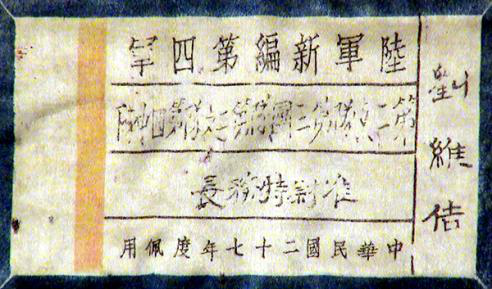 劉維佶
陸軍新編第四軍
第二支隊第三團第
准尉特務長
中華民國二十七年度佩用